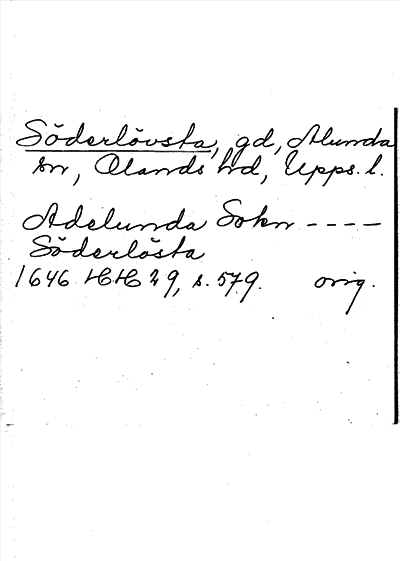 Söderlövsta, gd, Alunda
sn, Olands hd, Upps. l.
Adelunda Sokn ----
Söderlösta
1646 HH 29, s. 579. orig.